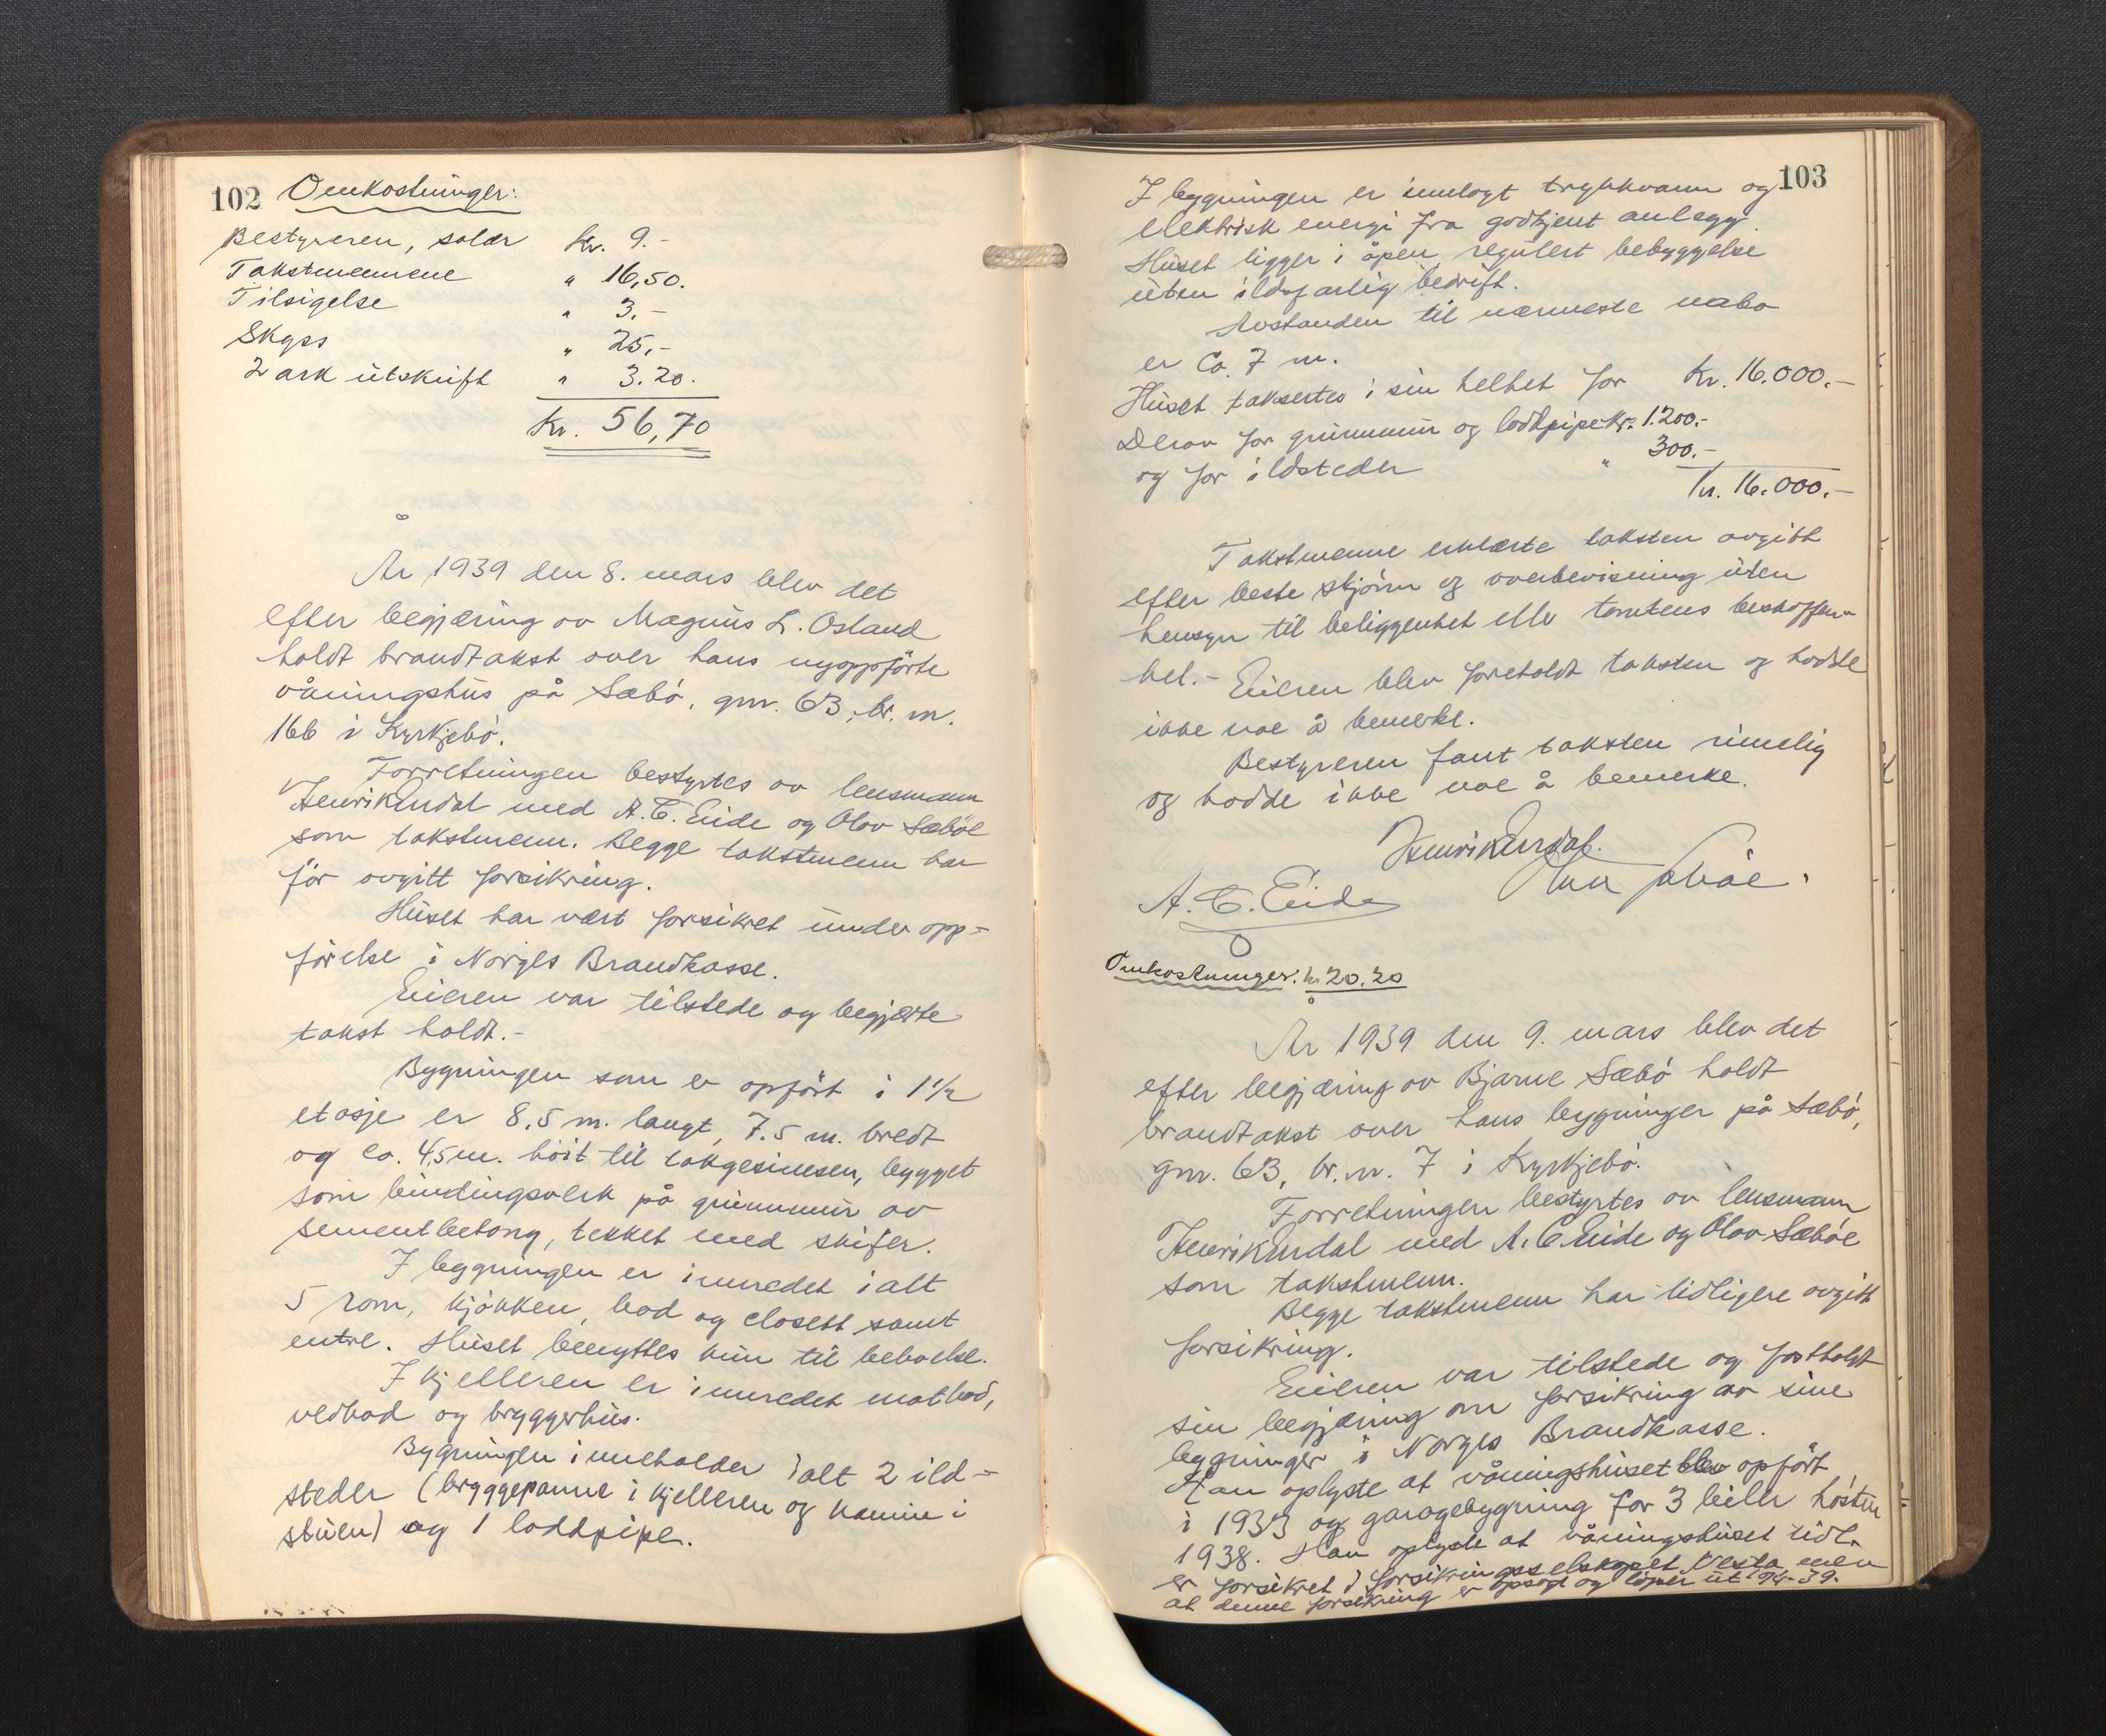 102
Omkostninger:
Bestyreren, salær Kr. 9.-
Takstmennene " 16,50.
Tilsigelse " 3,-
Skyss " 25,-
2 ark utskrift " 3.20.
Kr. 56,70
År 1939 den 8. mars blev det
efter begjæring av Magnus L. Osland
holdt brandtakst over hans nyoppførte
våningshus på Sæbø, gnr. 63, br. nr.
166 i Kyrkjebø.
Forretningen bestyrtes av lensmann
Henrik Endal med A. C. Eide og Olav Sæbøe
som takstmenn. Begge takstmenn har
før avgitt forsikring.
Huset har vært forsikret under opp-
førelse i Norges Brandkasse.
Eieren var tilstede og begjærte
takst holdt.-
Bygningen som er opført i 1 1/2
etasje er 8,5 m. langt, 7.5 m. bredt
og ca. 4,5 m. høit til takgesimsen, bygget
som bindingsverk på grunnmur av
sementbetong, tekket med skifer.
I bygningen er innredet ialt
5 rom, kjøkken, bod og closett samt
entre. Huset benyttes kun til beboelse.
I kjelleren er innredet matbod,
vedbod og bryggerhus.
Bygningen inneholder ialt 2 ild-
steder (bryggepanne i kjelleren og kamin i
stuen) og 1 loddpipe.
103
I bygningen er innlagt trykkvann og
elektrisk energi fra godkjent anlegg.
Huset ligger i åpen, regulert bebyggelse
uten ildsfarlig bedrift.
Avstanden til nærmeste nabo
er Ca. 7 m.
Huset taksertes i sin helhet for Kr. 16.000.-
Derav for grunnmur og loddpipe Kr. 1.200.-
og for ildsteder " 300.-
Kr. 16.000.-
Takstmenne erklærte taksten avgitt
efter beste skjønn og overbevisning uten
hensyn til beliggenhet eller tomtens beskaffen-
het.- Eieren blev foreholdt taksten og hadde
ikke noe å bemerke.
Bestyreren fant taksten rimelig
og hadde ikke noe å bemerke.
Henrik Endal.
A. C. Eide
Omkostninger: kr 20.20
År 1939 den 9. mars blev det
efter begjæring av Bjarne Sæbø holdt
brandtakst over hans bygninger på Sæbø,
gnr. 63, br. nr. 7 i Kyrkjebø.
Forretningen bestyrtes av lensmann
Henrik Endal med A. C. Eide og Olav Sæbøe
som takstmenn.
Begge takstmenn har tidligere avgitt
forsikring.
Eieren var tilstede og fastholdt
sin begjæring om forsikring av sine
bygninger i Norges Brandkasse.
Han oplyste at våningshuset blev opført
i 1933 og garagebygning for 3 biler høsten
1938. Han oplyste at våningshuset tidl.
er forsikret i forsikringsselskapet Vesta, men
at denne forsikring er opsagt og løper ut